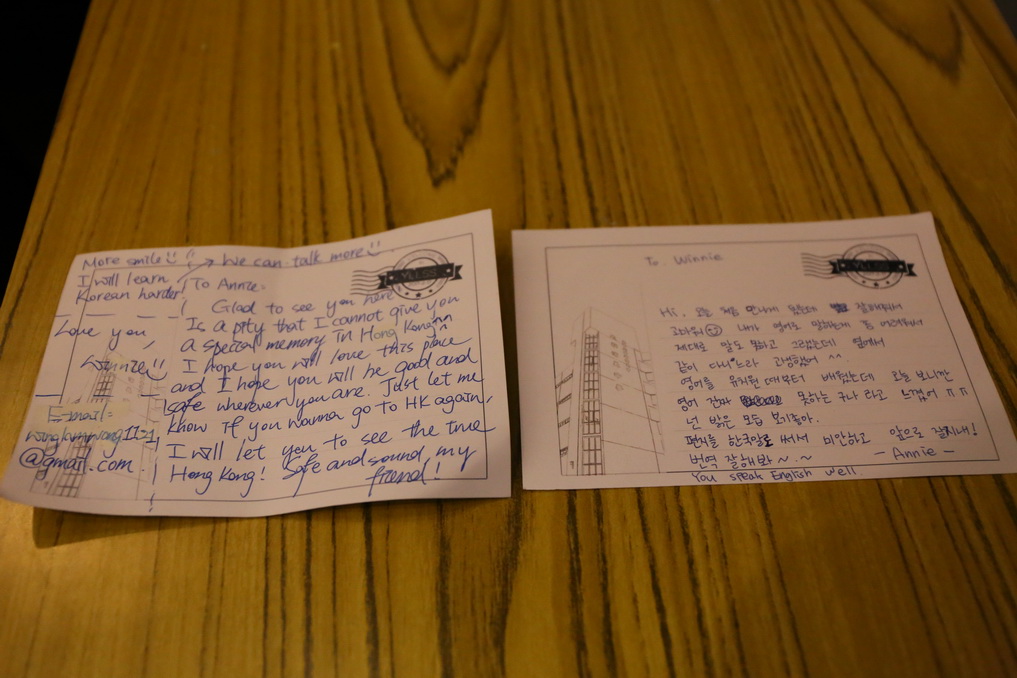 More smile
We can talk more
I will learn
Korean harder!
To Annie:
Glad to see you here!
Is a pity that I cannot give you
a special memory in Hong Kong
I hope you will love this place
and I hope you will be good and
safe wherever you are. Just let me
know if you wanna go to HK again,
I will let you to see the true
Hong Kong! Safe and sound, my
friend!
Love you,
Winnie
E-mail:
@gmail.com
To. Winnie
Hi, 오늘 처음 만나게 됐는데 잘해줘서
고마워 내가 영어도 말하는데
제대로 말도 못하고 그랬는데 옆에서
같이 다니느라 고생했어 ^^
영어를 유치원 때부터 배웠는데 오늘 보니깐
영어 진짜 못하는구나 라고 느꼈어 ㅠㅠ
넌 밝은 모습 보기좋아.
편지를 한국말로 써서 미안하고 앞으로 잘지내!
번역 잘해봐 ~.~
- Annie -
You speak English well.